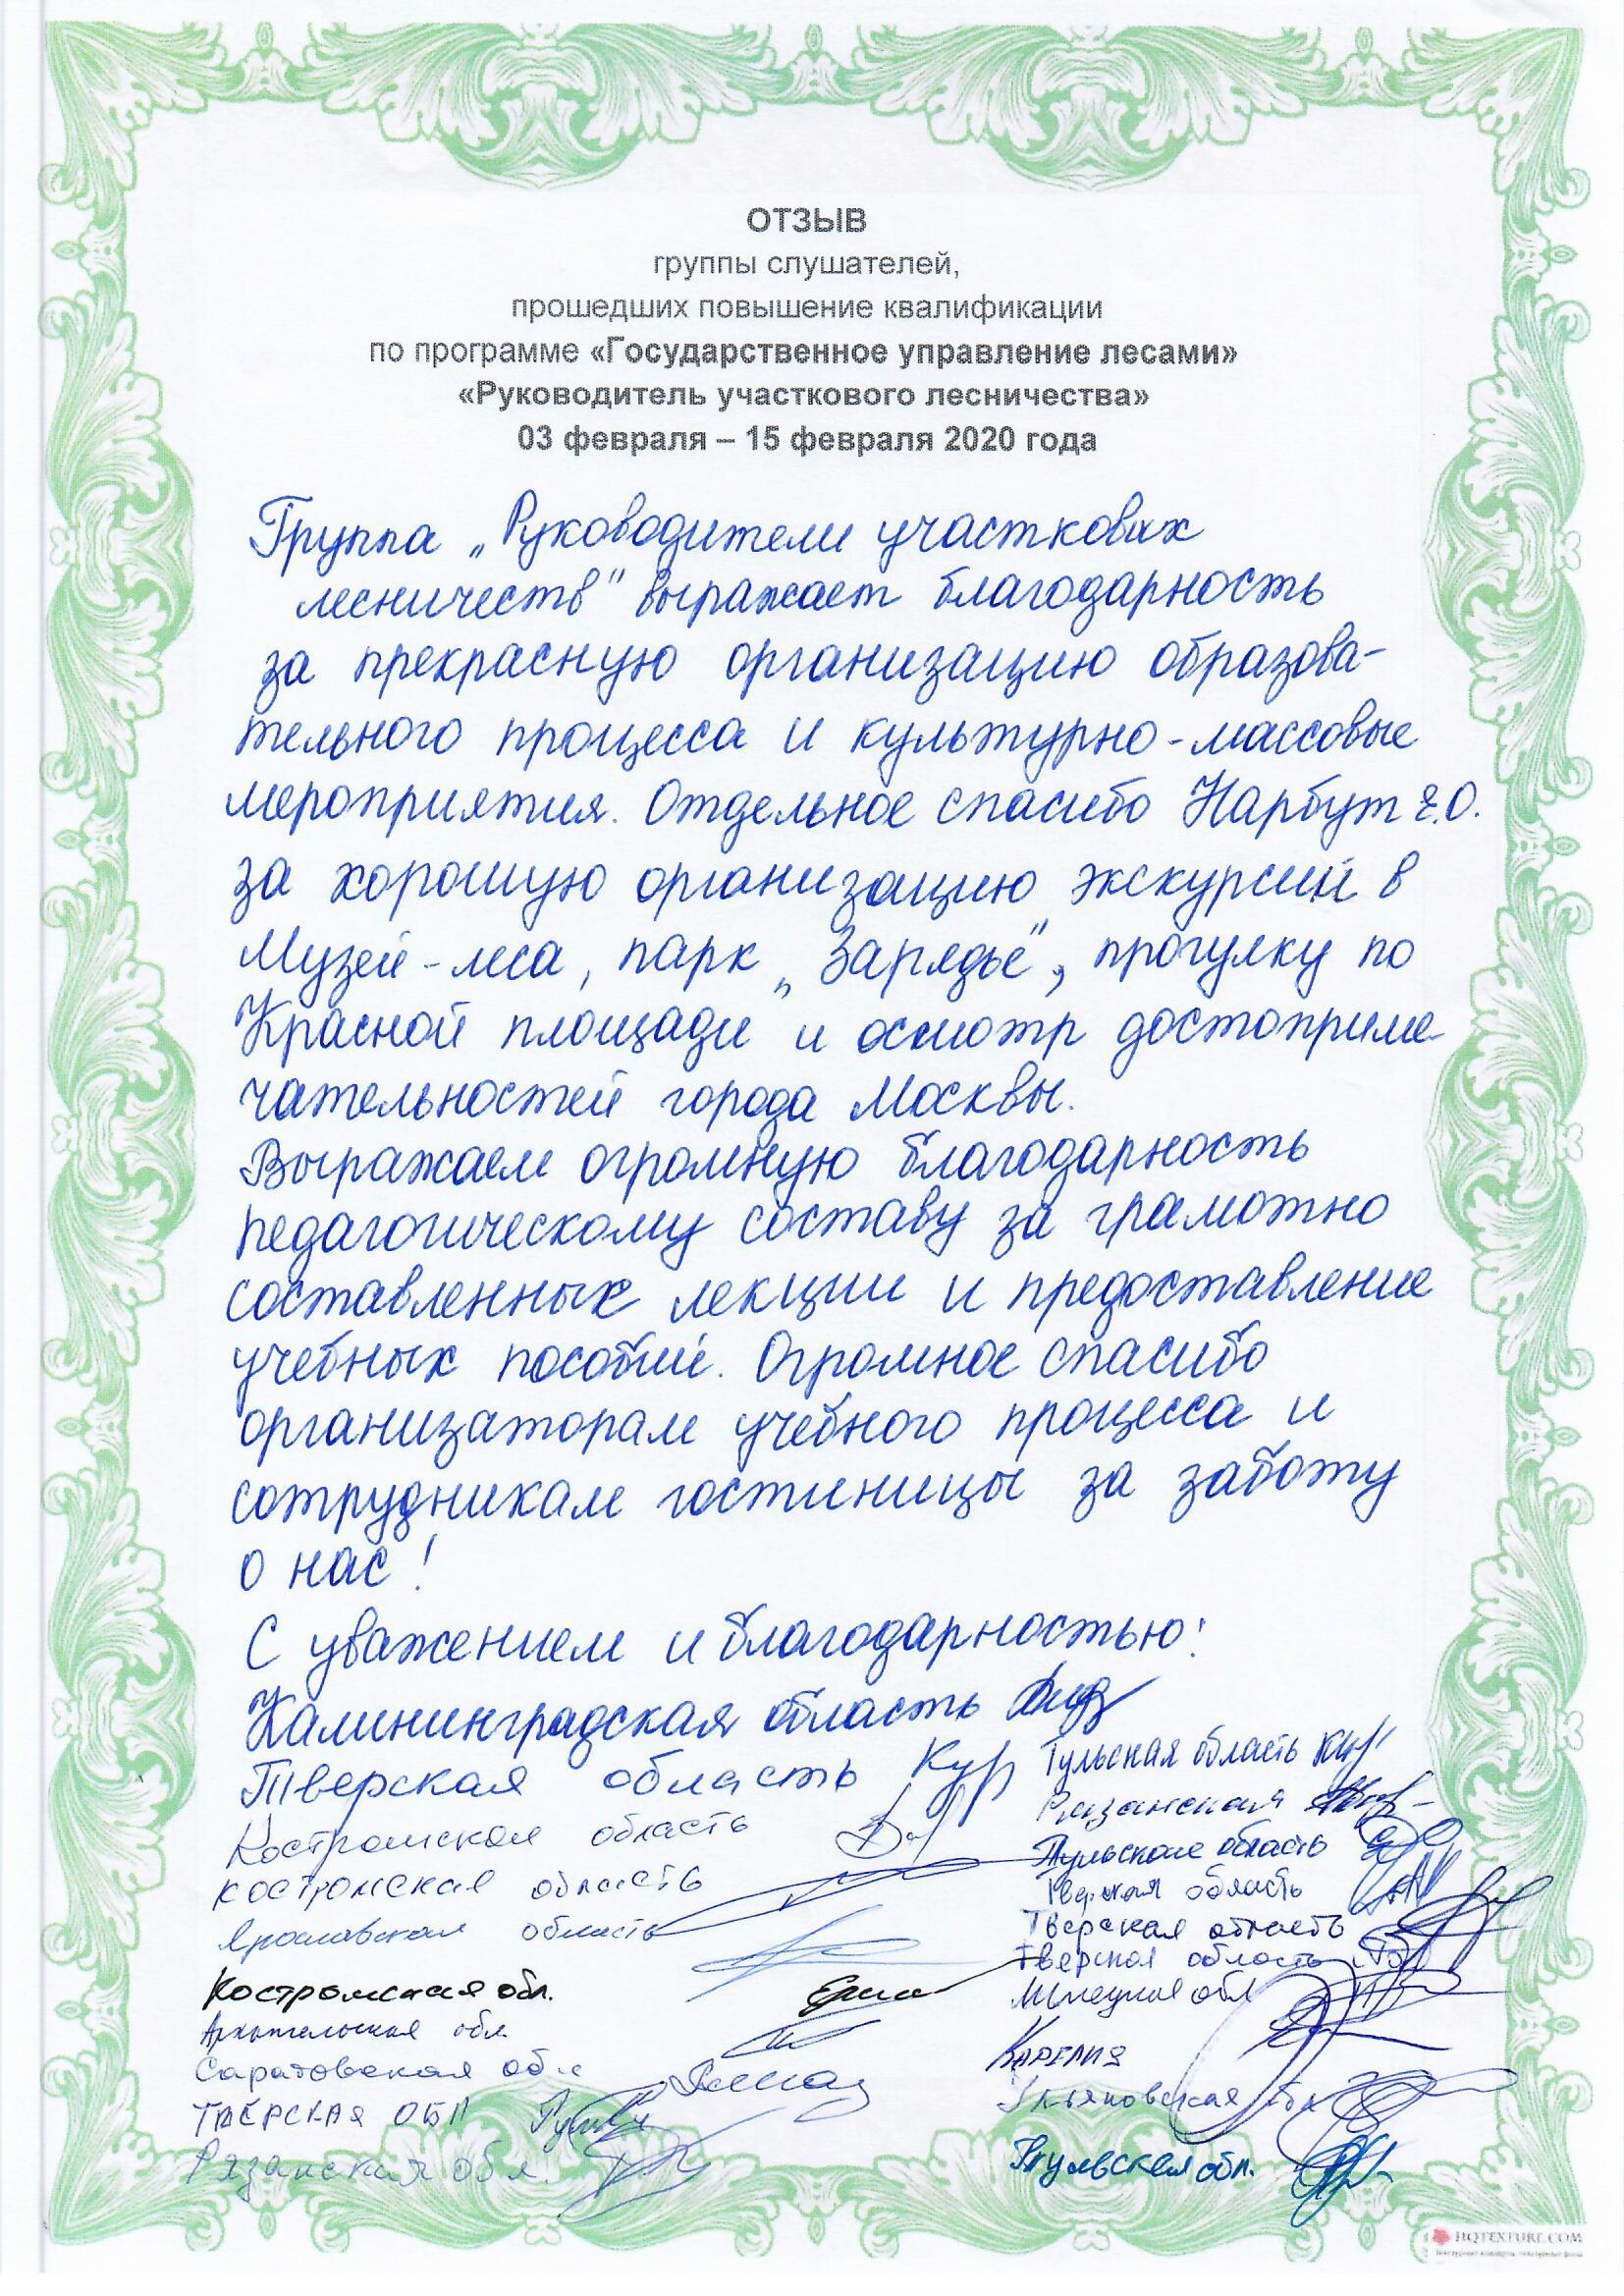 ОТЗЫВ
группы слушателей,
прошедших повышение квалификации
по программе «Государственное управление лесами»
«Руководитель участкового лесничества»
03 февраля – 15 февраля 2020 года
Группа „Руководители участковых
лесничеств" выражает благодарность
за прекрасную организацию образова-
тельного процесса и культурно-массовые
мероприятия. Отдельное спасибо Нарбут Е.О.
за хорошую организацию экскурсий в
Музей-леса, парк „Зарядье", прогулку по
Красной площади и осмотр достоприме-
чательностей города Москвы.
Выражаем огромную благодарность
педагогическому составу за грамотно
составленных лекции и предоставление
учебных пособий. Огромное спасибо
организаторам учебного процесса и
сотрудникам гостиницы за заботу
о нас!
С уважением и благодарностью:
Калининградская область
Тверская область
Костромская область
костромская область
Ярославская область
Костромская обл.
Архангельская обл
Саратовская обл
ТВЕРСКАЯ ОБЛ
Рязанская обл.
Тульская область
Рязанская
Тульская область
Тверская область
Тверская область
Тверская область
Липецкая обл
КАРЕЛИЯ
Ульяновская обл
Тульская обл.
HQTEXTURE.COM